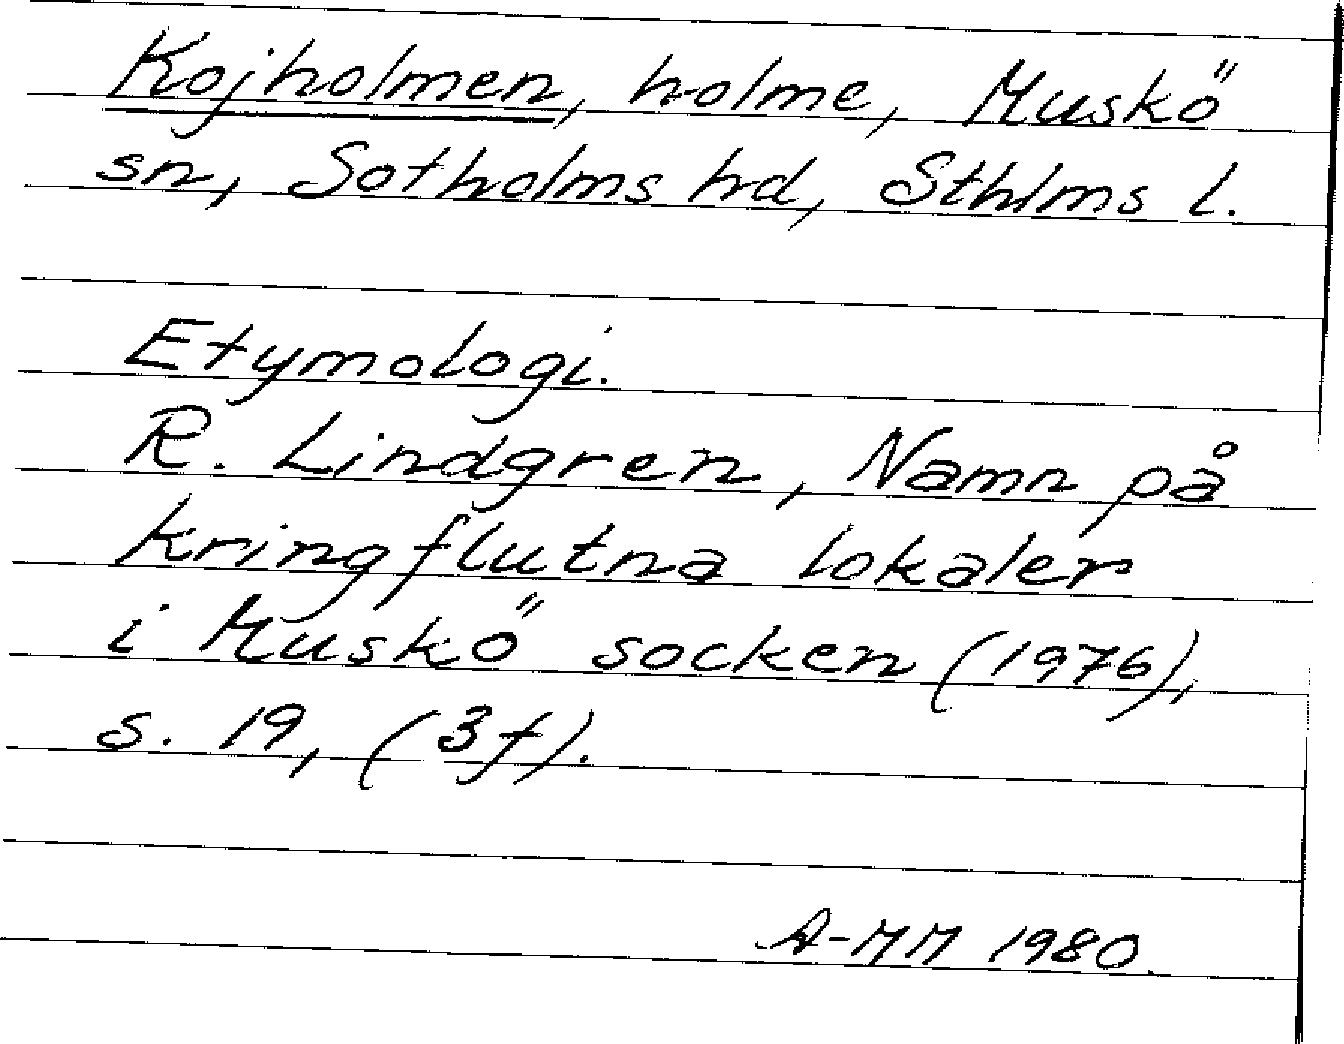 Kojholmen, holme, Muskö
sn, Sotholms hd, Sthlms l.
Etymologi.
R. Lindgren, Namn på
kringflutna lokaler
i Muskö socken (1976),
s. 19, (3f).
A-MM 1980.